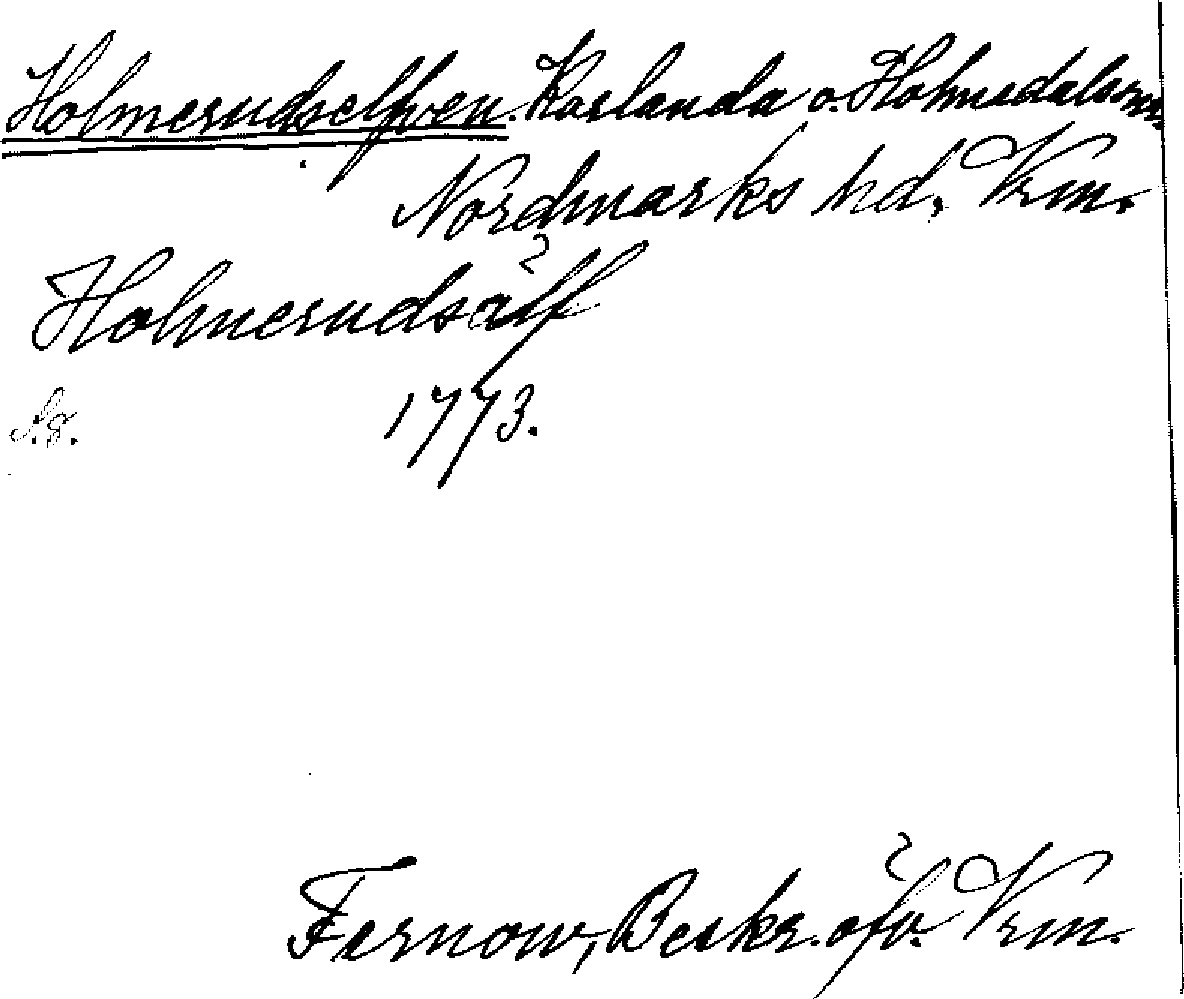 Holmerudselfven. Karlanda o. Holmedals snr,
Nordmarks hd, Vrm.
Holmerudsälf
1773.
Fernow, Beskr. öfv. Vrm.